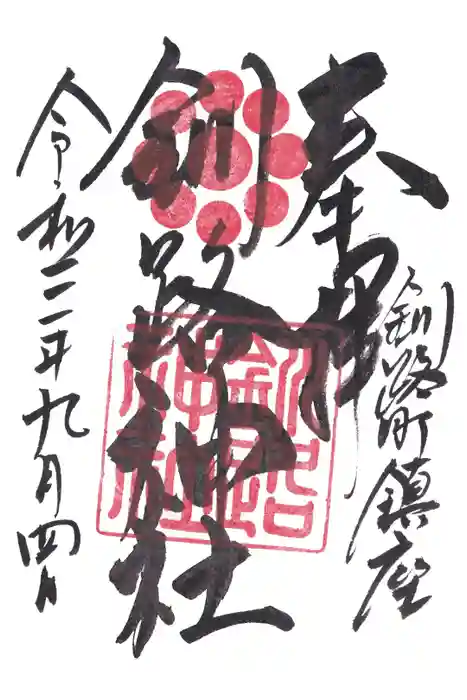 奉拝
釧路町鎮座
釧路神社
釧路神社
令和三年九月四日